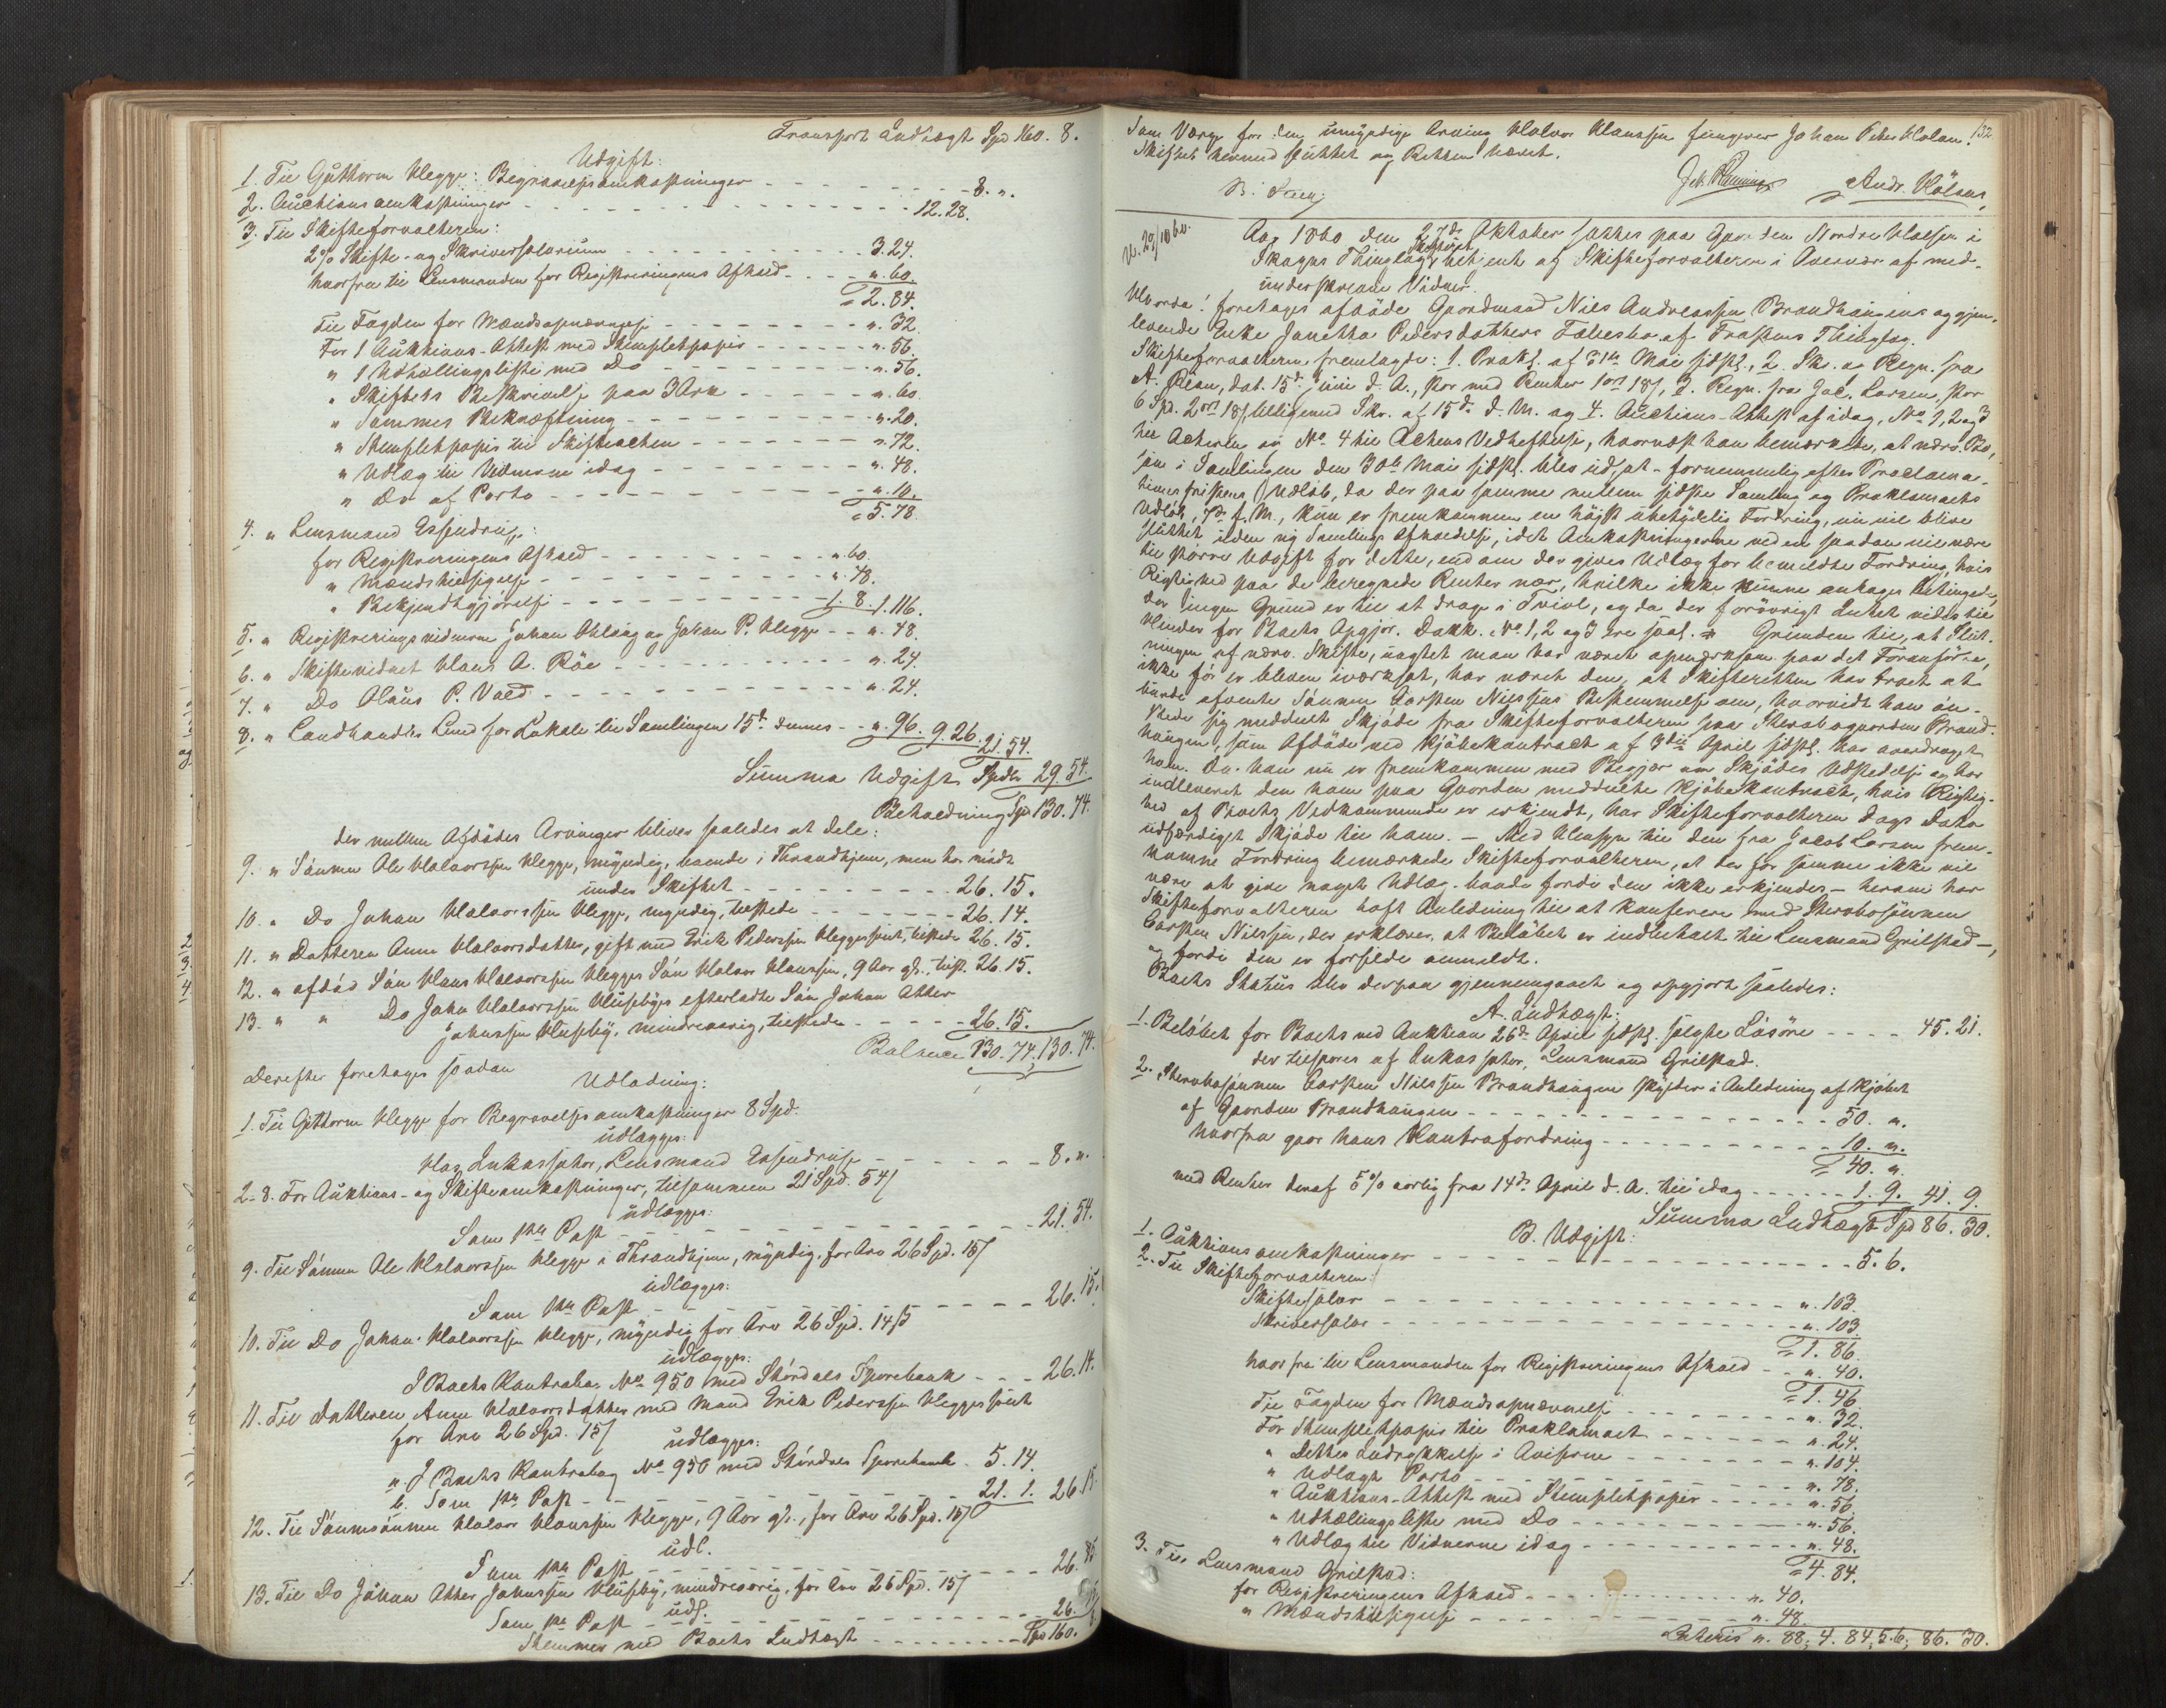 Transport Indtægt Spd 160. 8.
Udgift:
1. Til Guttorm Klegge: Begravelsesomkostninger - - - 8. "
2. Auctionsomkostninger - - - 12. 28.
3. Til Skifteforvalteren:
2% Skifte- og Skriversalarium - - - 3. 24.
hvorfra til Lensmanden for Registreringens Afhold - - - ". 60.
= 2. 84.
Til Fogden for Mændsopnævnelse - - - ". 32.
For 1 Auktions-Attest med Stempletpapir - - - ". 56.
" 1 Udhællingsliste med Do - - - ". 56.
" Skiftets Beskrivelse paa 3 Ark - - - ". 60.
" Sammes Bekræftning - - - ". 20.
" Stempletpapir til Skifteacten - - - ". 72.
" Udlæg til Vidnerne idag - - - ". 48.
" Do af Porto - - - ". 10.
= 5. 78.
4. " Lensmand
for Registreringens Afhold - - - ". 60.
" Mændstilsigelse - - - ". 48.
" Bekjendtgjørelse - - - 1. 8. 1. 116.
5. " Registreringsvidnerne Johan og Johan P. Klegge - - ". 48.
6. " Skiftevidnet Hans A. Röe - - - ". 24.
7. " Do Olaus P. Vold - - - ". 24.
8. " Landhandler Lund for Lokale til Samlingen 15de dennes - - ". 96. 9. 26. 21. 54.
Summa Udgift Spdlr 29. 54.
Beholdning Spd 130. 74.
der mellem Afdødes Arvinger bliver saaledes at dele:
9. " Sønnen Ole Halvorssen Klegge, myndig, boende i Throndhjem, men har mödt
under Skiftet - - - 26. 15.
10. " Do Johan Halvorssen Klegge, myndig, tilstede - - - 26. 14.
11. " Datteren Anne Halvorsdatter, gift med Erik Pederssen tilstede 26. 15.
12. " afdöd Sön Hans Halvorssen Klegges Sön Halvor Hanssen, 9 Aar gl., tilst. 26. 15.
13. " " Do John Halvorssen Husebys efterladte Sön Johan Atter
Johnssen Huseby, mindreaarig, tilstede - - - 26. 15.
Balance 130. 74, 130. 74.
Derefter foretages saadan
Udlodning:
1. Til Guttorm Klegge for Begravelsesomkostninger 8 Spd.
udlægges:
Hos Inkassator, Lensmand - - - 8. ".
2-8. For Auktions- og Skifteomkostninger, tilsammen 21 Spd. 54 ß
udlægges:
Som 1ste Post - - - 21. 54.
9. Til Sønnen Ole Halvorssen Klegge i Throndhjem, myndig, for Arv 26 Spd. 15 ß
udlægges:
Som 1ste Post - - - 26. 15.
10. Til Do Johan Halvorssen Klegge, myndig for Arv 26 Spd. 14 ß
udlægges:
I Boets Kontrabog No 950 med Størdals Sparebank - - - 26. 14.
11. Til Datteren Anne Halvorsdatter med Mand Erik Pederssen
for Arv 26 Spd. 15 ß
udlægges:
a. I Boets Kontrabog No 950 med Størdals Sparebank - 5. 14.
b. Som 1ste Post - - - 21. 1. 26. 15.
12. Til Sønnesønnen Halvor Hanssen Klegge, 9 Aar gl., for Arv 26 Spd. 15 ß
udl.
Som 1ste Post - - - 26. 15.
13. Til Do Johan Atter Johnssen Huseby, mindreaarig, for Arv 26 Spd. 15 ß
udl.
Som 1ste Post - - - 26.
Stemmer med Boets Indtægt - - - Spd 160.
132
Som Værge for den umyndige Arving Halvor Hanssen fungerer Johan Peter
Skiftet hermed sluttet og Retten hævet.
Andr.
Aar 1860 den 27de Oktober sattes paa Gaarden Nordre i
Skogns Thinglag Skifteret betjent af Skifteforvalteren i Overvær af med-
underskrevne Vidner.
Hvorda: foretages afdöde Gaardmand Niels Andreassen Brandhaugens og gjen-
levende Enke Janetta Pedersdatters Fællesbo af Frostens Thinglag.
Skifteforvalteren fremlagde: 1. Prokl. af 31te Mai sidstl., 2. Skr. og Regn. fra
A. dat. 15de Juni d. A., stor med Renter 1 ort 18 ß, 3. Regn. fra Jac. Larsen, stor
6 Spd. 2 ort 18 ß tilligemed Skr. af 15de d. M. og 4. Auctions-Attest af idag, No 1, 2 og 3
til Acten og No 4 til Actens Vedheftelse, hvornæst han bemærkede, at nærv. Bo,
som i Samlingen den 30te Mai sidstl. blev udsat fornemmelig efter Proclama-
tionsfristens Udløb, da der paa samme mellem sidste Samling og Proklamaets
Udløb, 7de d. M., kun er fremkommen en højst ubetydelig Fordring, nu vil blive
sluttet uden ny Samlings Afholdelse, idet Omkostningerne ved en saadan vil være
til større Udgift for dette, end om der gives Udlæg for bemeldte Fordring, hvis
Rigtighed paa de beregnede Renter nær, hvilke ikke kunne antages betingede,
der ingen Grund er til at drage i Tvivl, og da der forövrigt Intet vides til
Hinder for Boets Opgjör. Dokk. No 1, 2 og 3 ere saal. Grunden til, at Slut-
ningen af nærv. Skifte, uagtet man har været opmærksom paa det Foranførte,
ikke för er bleven iværksat, har været den, at Skifteretten har troet at
burde afvente Sönnen Carsten Nilssens Bestemmelse om, hvorvidt han ön-
skede sig meddeelt Skjöde fra Skifteforvalteren paa Sterbogaarden Brand-
haugen, som Afdöde ved Kjöbekontract af 3die April sidstl. har overdraget
ham. Da han nu er fremkommen med Begjær om Skjödes Udstedelse og har
indleveret den ham paa Gaarden meddeelte Kjöbekontract, hvis Rigtig-
hed af Boets Vedkommende er erkjendt, har Skifteforvalteren Dags Dato
udfærdiget Skjöde til ham. — Med Hensyn til den fra Jacob Larsen frem-
komne Fordring bemærkede Skifteforvalteren, at der for samme ikke vil
være at give noget Udlæg baade fordi den ikke erkjendes — herom har
Skifteforvalteren haft Anledning til at konferere med Sterbosønnen
Carsten Nilssen, der erklærer, at Belöbet er indbetalt til Lensmand Grilstad —,
og fordi den er forsilde anmeldt.
Boets Status blev derpaa gjennemgaaet og opgjort saaledes:
A. Indtægt:
1. Belöbet for Boets ved Auktion 26de April sidstl. solgte Lösöre - - - 45. 21.
der tilsvares af Inkassator, Lensmand Grilstad.
2. Sterbosønnen Carsten Nilssen Brandhaugen skylder i Anledning af Kjöbet
af Gaarden Brandhaugen - - - 50. ".
hvorfra gaar hans Kontrafordring - - - 10. ".
= 40. ".
med Renter deraf 5 % aarlig fra 14de April d. A. til idag - - - 1. 9. 41. 9.
Summa Indtægt Spd 86. 30.
B. Udgift:
1. Auktionsomkostninger - - - 5. 6.
2. Til Skifteforvalteren:
Skiftesalar - - - ". 103.
Skriversalar - - - ". 103.
= 1. 86.
hvorfra til Lensmanden for Registreringens Afhold - - ". 40.
= 1. 46.
Til Fogden for Mændsopnævnelse - - - ". 32.
For Stempletpapir til Proklamaet - - - ". 24.
" Dettes Indrykkelse i Aviserne - - - ". 104.
" Udlagt Porto - - - ". 78.
" Auktions-Attest med Stempletpapir - - - ". 56.
" Udhællingsliste med Do - - - ". 56.
" Udlæg til Vidnerne idag - - - ". 48.
= 4. 84.
3. Til Lensmand Grilstad:
for Registreringens Afhold - - - ". 40.
" Mændstilsigelse - - - ". 48.
Lateris ". 88; 4. 84; 5. 6; 86. 30.